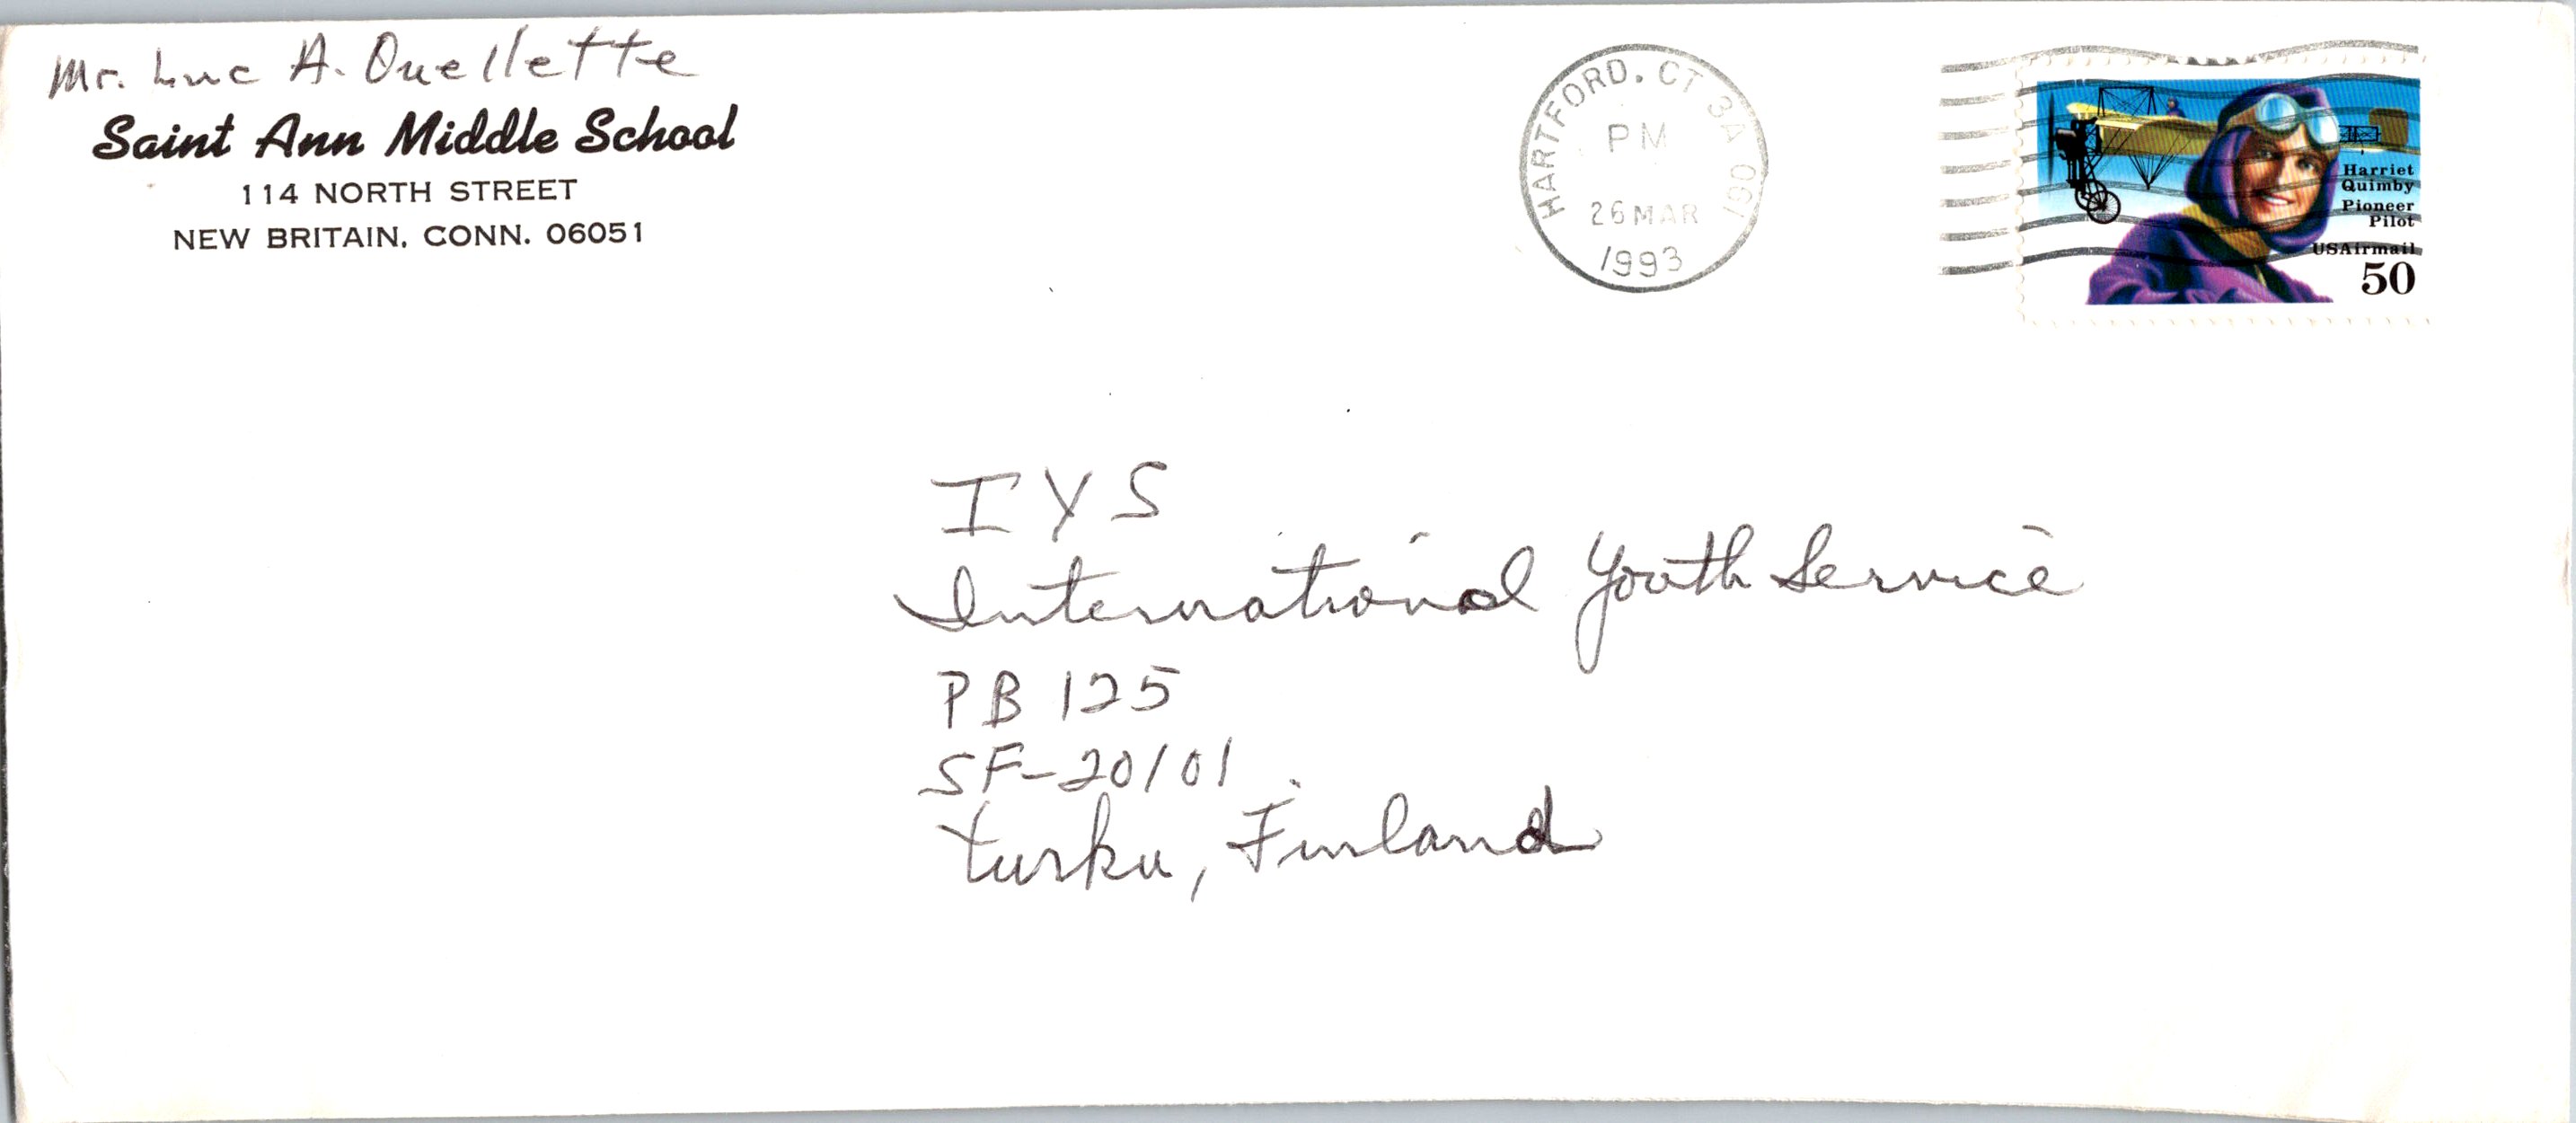 Mr. Luc A. Ouellette
Saint Ann Middle School
114 NORTH STREET
NEW BRITAIN, CONN. 06051
HARTFORD, CT 3A 060
PM
26 MAR
1993
Harriet
Quimby
Pioneer
Pilot
USAirmail
50
IYS
International Youth Service
PB 125
SF-20101
Turku, Finland